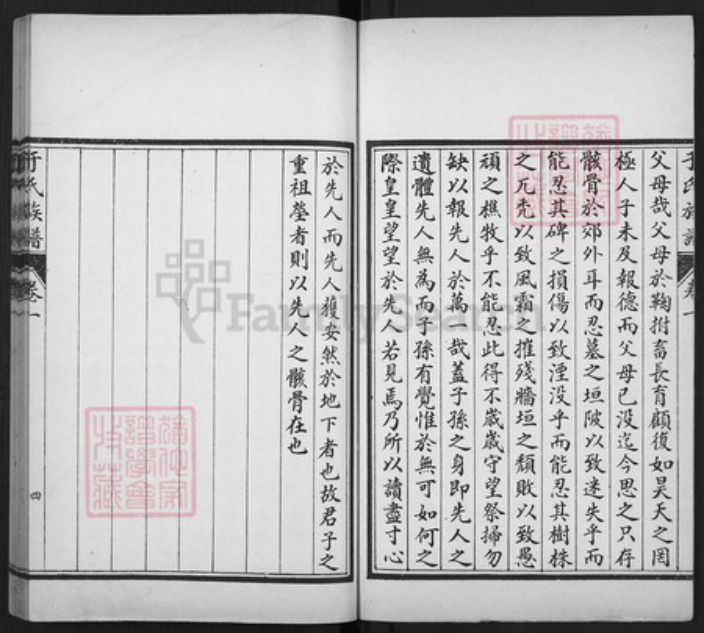 父母哉父母於鞠拊畜長育顧復如昊天之罔
極人子未及報德而父母已没迄今思之只存
骸骨於郊外耳而忍墓之垣陂以致迷失乎而
能忍其碑之損傷以致湮没乎而能忍其樹株
之兀禿以致風霜之摧殘牆垣之頹敗以致愚
頑之樵牧乎不能忍此得不歲歲守望祭掃勿
缺以報先人於萬一哉蓋子孫之身即先人之
遺體先人無為而子孫有覺惟於無可如何之
際皇皇望望於先人若見焉乃所以讀盡寸心
於先人而先人獲安然於地下者也故君子之
重祖塋者則以先人之骸骨在也
于氏族譜
卷一
四
于氏族譜
卷一
FamilySearch